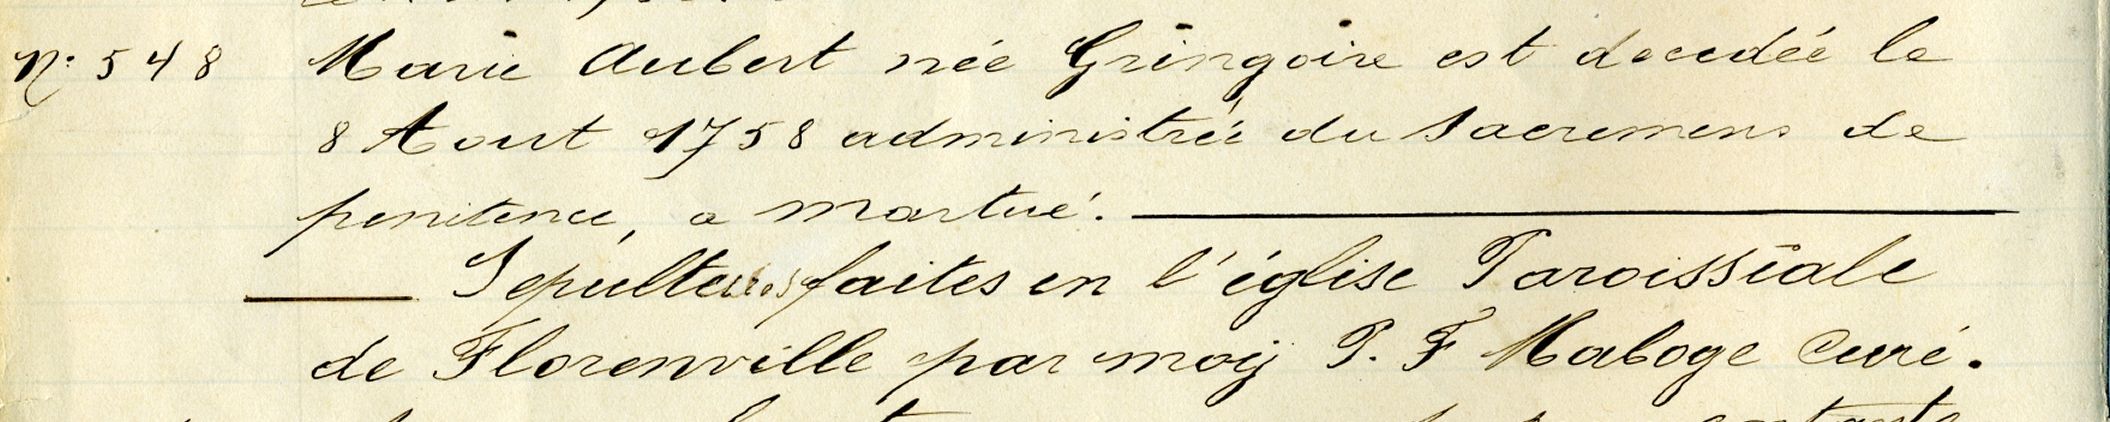 N° 548 Marie Aubert née Gringoire est decedée le
8 Aout 1758 administrée du Sacremens de
penitence, a Martué.
Sepultures faites en l'église Paroissiale
de Florenville par moij P. F Maboge Curé.